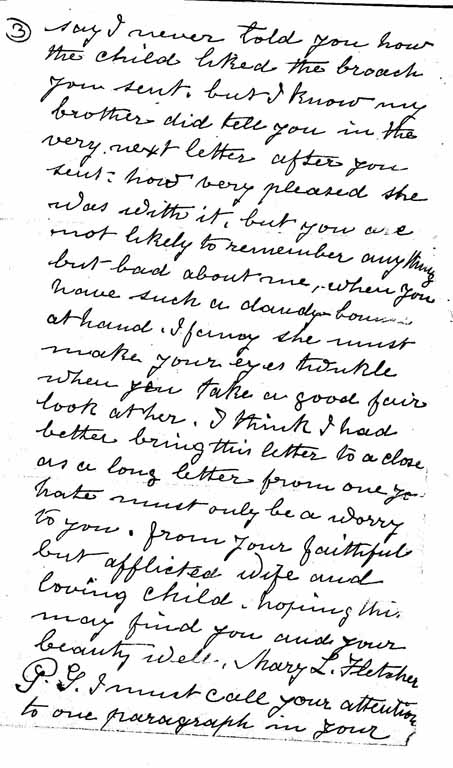 3
say I never told you how
the child liked the broach
you sent. but I know my
brother did tell you in the
very next letter after you
sent: how very pleased she
was with it, but you are
not likely to remember anything
but bad about me, when you
have such a dandy
at hand. I fancy she must
make your eyes twinkle
when you take a good fair
look at her. I think I had
better bring this letter to a close
as a long letter from one yo
hate must only be a worry
to you. from your faithful
but afflicted wife and
loving child. hoping this
may find you and your
beauty well. Mary L. Fletsher
P.S. I must call your attention
to one paragraph in your